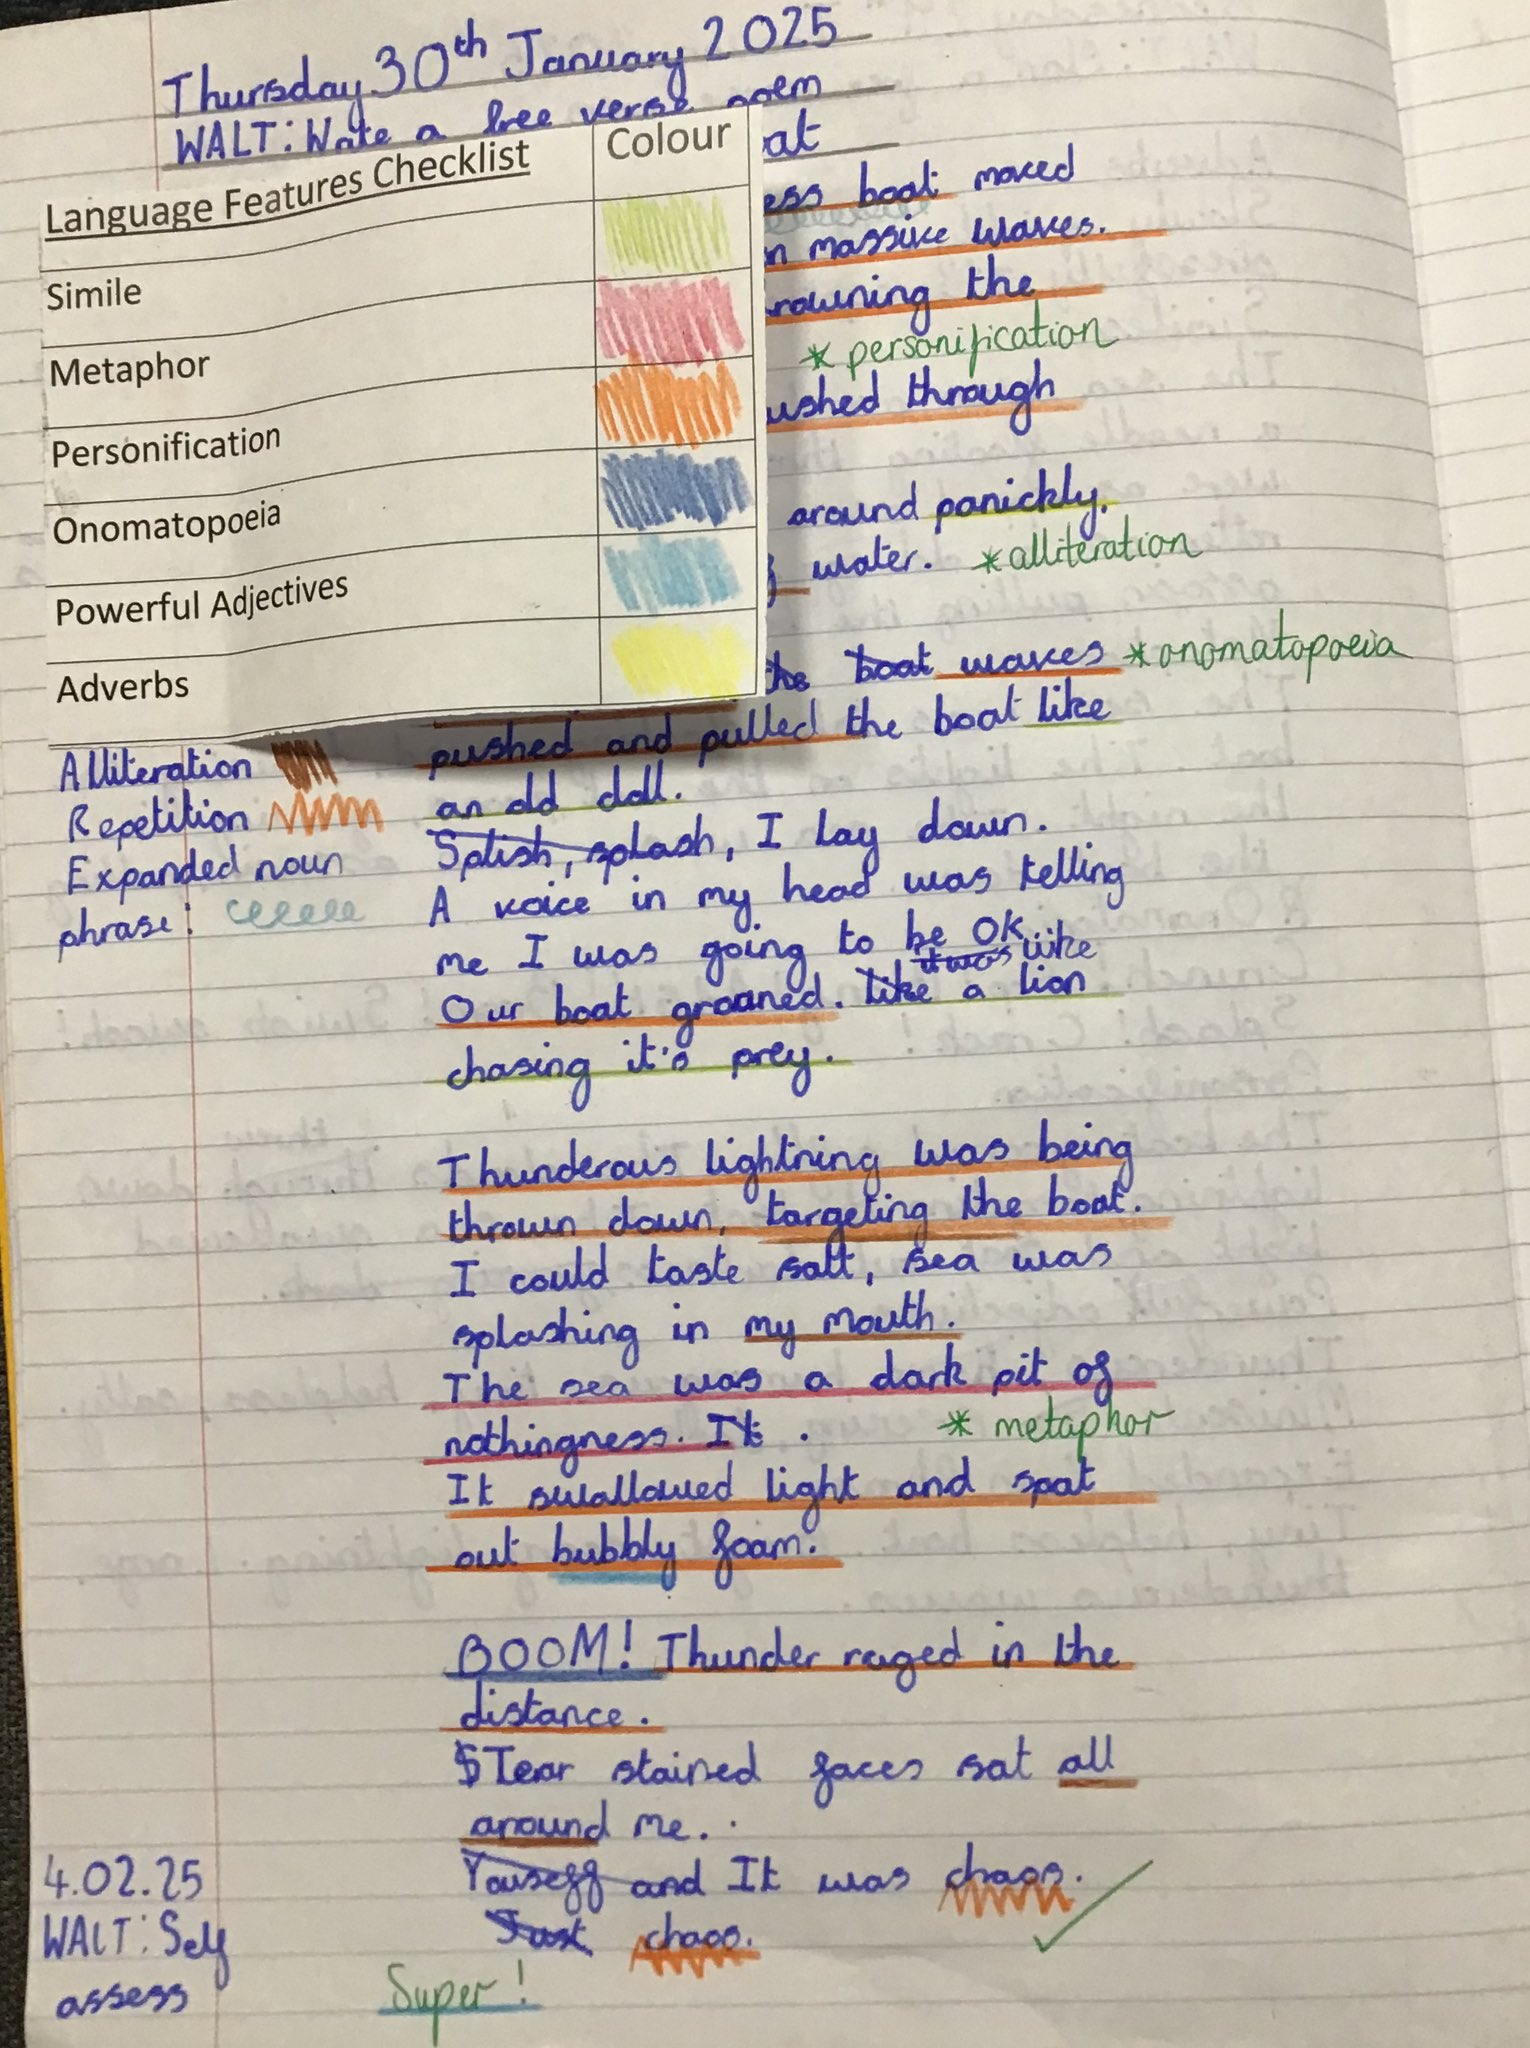 Thursday 30th January 2025
WALT: Write a free verse poem
Language Features Checklist
Colour
Simile
Metaphor
Personification
Onomatopoeia
Powerful Adjectives
Adverbs
Alliteration
Repetition
Expanded noun
phrase:
boat moved
massive waves.
the
* personification
through
around panickly.
water. * alliteration
boat waves * onomatopoeia
pushed and pulled the boat like
an old doll.
Splish, splash, I lay down.
A voice in my head was telling
me I was going to be OK...
it was like
Our boat groaned. Like a lion
chasing it's prey.
Thunderous lightning was being
thrown down, targeting the boat.
I could taste salt, sea was
splashing in my mouth.
The sea was a dark pit of
nothingness. It .
* metaphor
It swallowed light and spat
out bubbly foam.
BOOM! Thunder raged in the
distance.
Tear stained faces sat all
around me..
Youseff and It was chaos.
Just chaos.
4.02.25
WALT: Self
assess
Super!